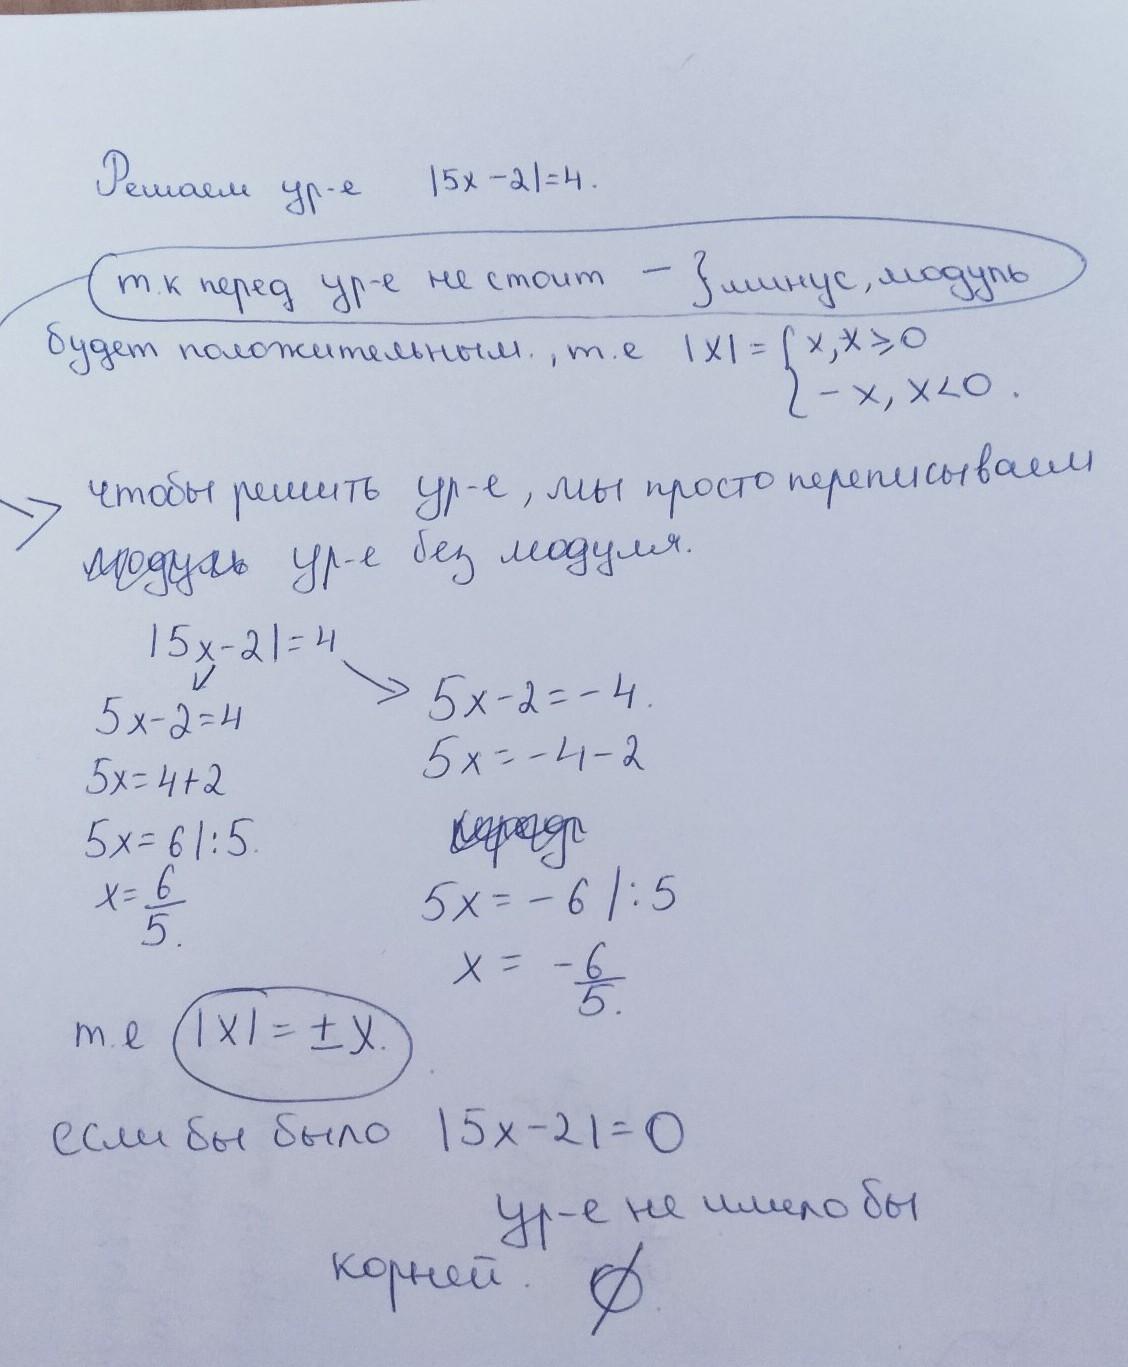 Решаем ур-е |5x-2|=4.
т.к перед ур-е не стоит - } минус, модуль
будет положительным., т.е |x| = { x, x ≥ 0
- x, x < 0 .
чтобы решить ур-е, мы просто переписываем
модуль ур-е без модуля.
|5x-2|=4
5x-2=4
5x=4+2
5x=6 |:5.
x=6/5.
5x-2=-4.
5x=-4-2
5x=-6 |:5
x = -6/5.
т.е |x| = ± x.
если бы было |5x-2|=0
ур-е не имело бы
корней. ∅.